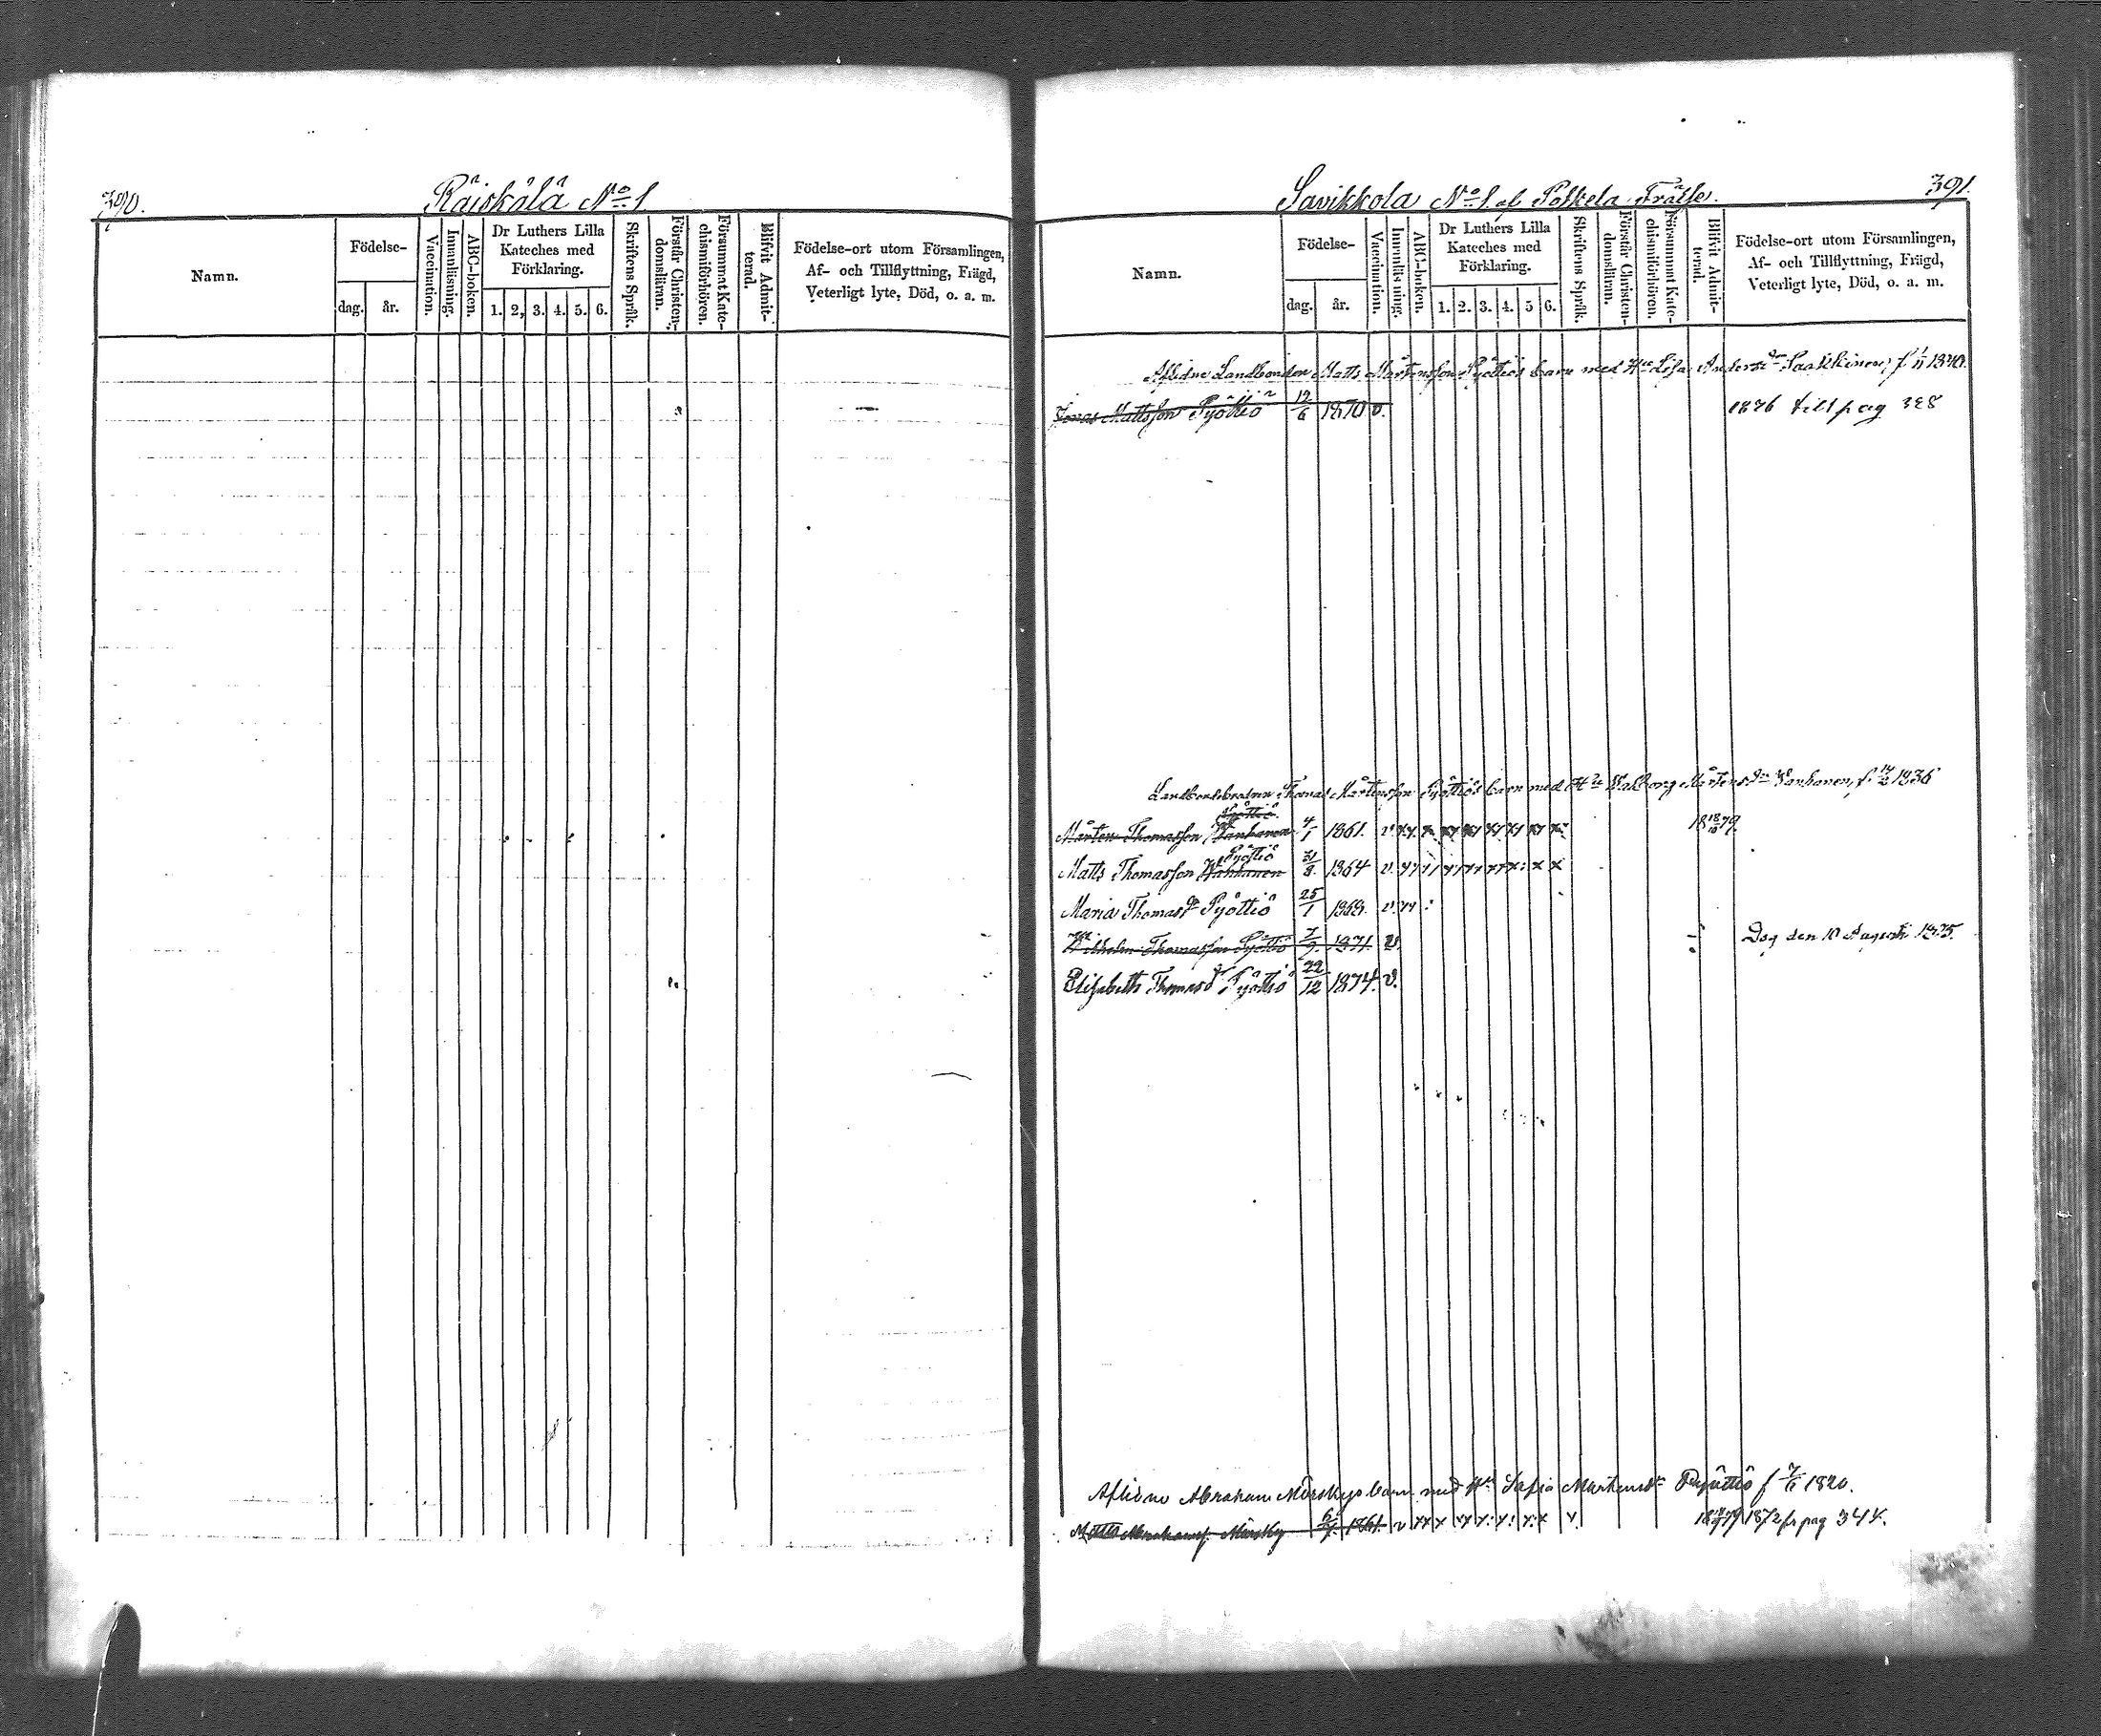 390.
Räiskälä No 1
Namn.
Födelse-
dag.
år.
Vaccination.
Innanläsning.
ABC-boken.
Dr Luthers Lilla
Kateches med
Förklaring.
1. 2, 3. 4. 5. 6.
Skriftens Språk.
Förstår Christen-
domsläran.
Försummat Kate-
chismiförhören.
Blifvit Admit-
terad.
Födelse-ort utom Församlingen,
Af- och Tillflyttning, Frägd,
Veterligt lyte, Död, o. a. m.
Savikkola No 1 af Polkela Frälse.
391.
Namn.
Födelse-
dag.
år.
Vaccination.
Innanläsning.
ABC-boken.
Dr Luthers Lilla
Kateches med
Förklaring.
1. 2. 3. 4. 5 6.
Skriftens Språk.
Förstår Christen-
domsläran.
Försummat Kate-
chismiförhören.
Blifvit Admit-
terad.
Födelse-ort utom Församlingen,
Af- och Tillflyttning, Frägd,
Veterligt lyte, Död, o. a. m.
Aflidne Landbonden Matts Mårtensson Pyöttiös barn med Hu Lisa Andersdr Saakkinen, f. 1/11 1840.
Jonas Mattsson Pyöttiö 12/6 1870 v. 1876 till pag 328
Landbondebrodren Thomas Mårtensson Pyöttiös barn med Hu Walborg Mårtensdr Wanhanen, f. 1836
Pyöttiö
Mårten Thomasson Wanhanen 4/1 1861. v 18 79.
Pyöttiö
Matts Thomasson Wanhanen 31/8 1864 v.
Maria Thomasdr Pyöttiö 25/1 1868. v.
Wilhelm Thomasson Pyöttiö 7/9 1871. v. Dog den 10 Augusti 1875.
Elisabeth Thomasdr Pyöttiö 22/12 1874. v.
Aflidne Abraham Mörskys barn med Hu Sofia Mårtensdr Pyöttiö f 7/6 1820.
Matts Abrahamss. Mörsky 1861. v 1872 fr pag 344.